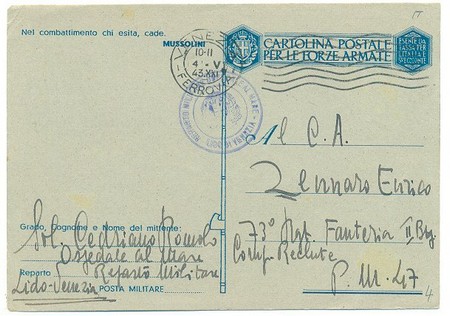 Nel combattimento chi esita, cade.
MUSSOLINI
VENEZIA
10-11
4·V
43.XXI
FERROVIA
CARTOLINA POSTALE
PER LE FORZE ARMATE
ESENTE DA
TASSA PER
L'ITALIA
LIDO DI VENEZIA
Al C.A.
Zennaro Enrico
73° Rgt. Fanteria II Btg.
Comp. Reclute
P.M. 47
4
Grado, Cognome e Nome del mittente:
Sol. Cedriano Romolo
Ospedale al Mare
Reparto Reparto Militare
Lido-Venezia POSTA MILITARE